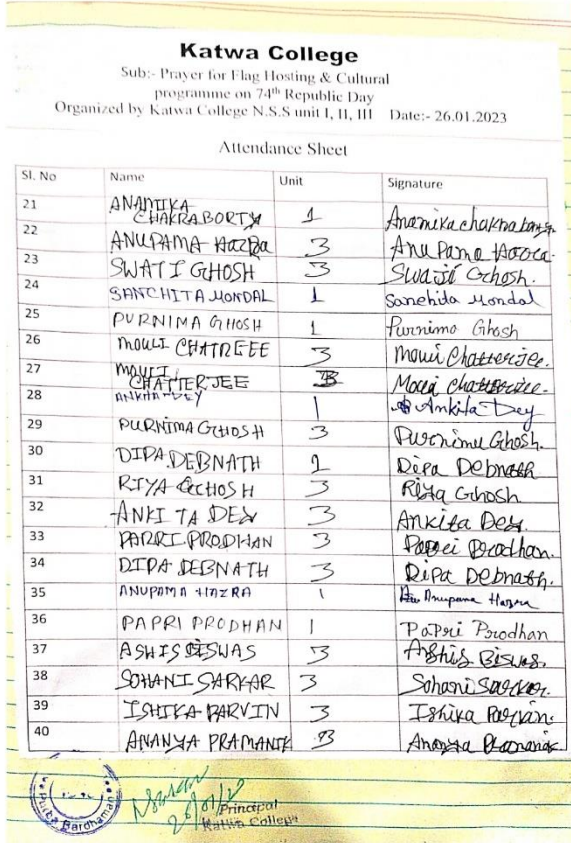 Katwa College
Sub:- Prayer for Flag Hosting & Cultural
programme on 74th Republic Day
Organized by Katwa College N.S.S unit I, II, III Date:- 26.01.2023
Attendance Sheet
Sl. No Name Unit Signature
21 ANAMIKA CHAKRABORTY 1 Anamika chakraborty
22 ANUPAMA HAZRA 3 Anupama Hazra
23 SWATI GHOSH 3 Swati Ghosh.
24 SANCHITA MONDAL 1 Sanchita Mondal
25 PURNIMA GHOSH 1 Purnima Ghosh
26 MOULI CHATREEE 3 Mouli Chatterjee.
27 MOULI CHATTERJEE 3 Mouli Chatterjee.
28 ANKITA DEY 1 Ankita Dey
29 PURNIMA GHOSH 3 Purnima Ghosh.
30 DIPA DEBNATH 1 Dipa Debnath
31 RIYA GHOSH 3 Riya Ghosh
32 ANKITA DEY 3 Ankita Dey.
33 PAPRI PRODHAN 3 Papri Prodhan.
34 DIPA DEBNATH 3 Dipa Debnath.
35 ANUPAMA HAZRA 1 Anupama Hazra
36 PAPRI PRODHAN 1 Papri Prodhan
37 ASHIS BISWAS 3 Ashis Biswas.
38 SOHANI SARKAR 3 Sohani Sarkar.
39 ISHIKA PARVIN 3 Ishika Parvin.
40 ANANYA PRAMANIK 3 Ananya Pramanik
Purba Bardhaman
Principal
Katwa College